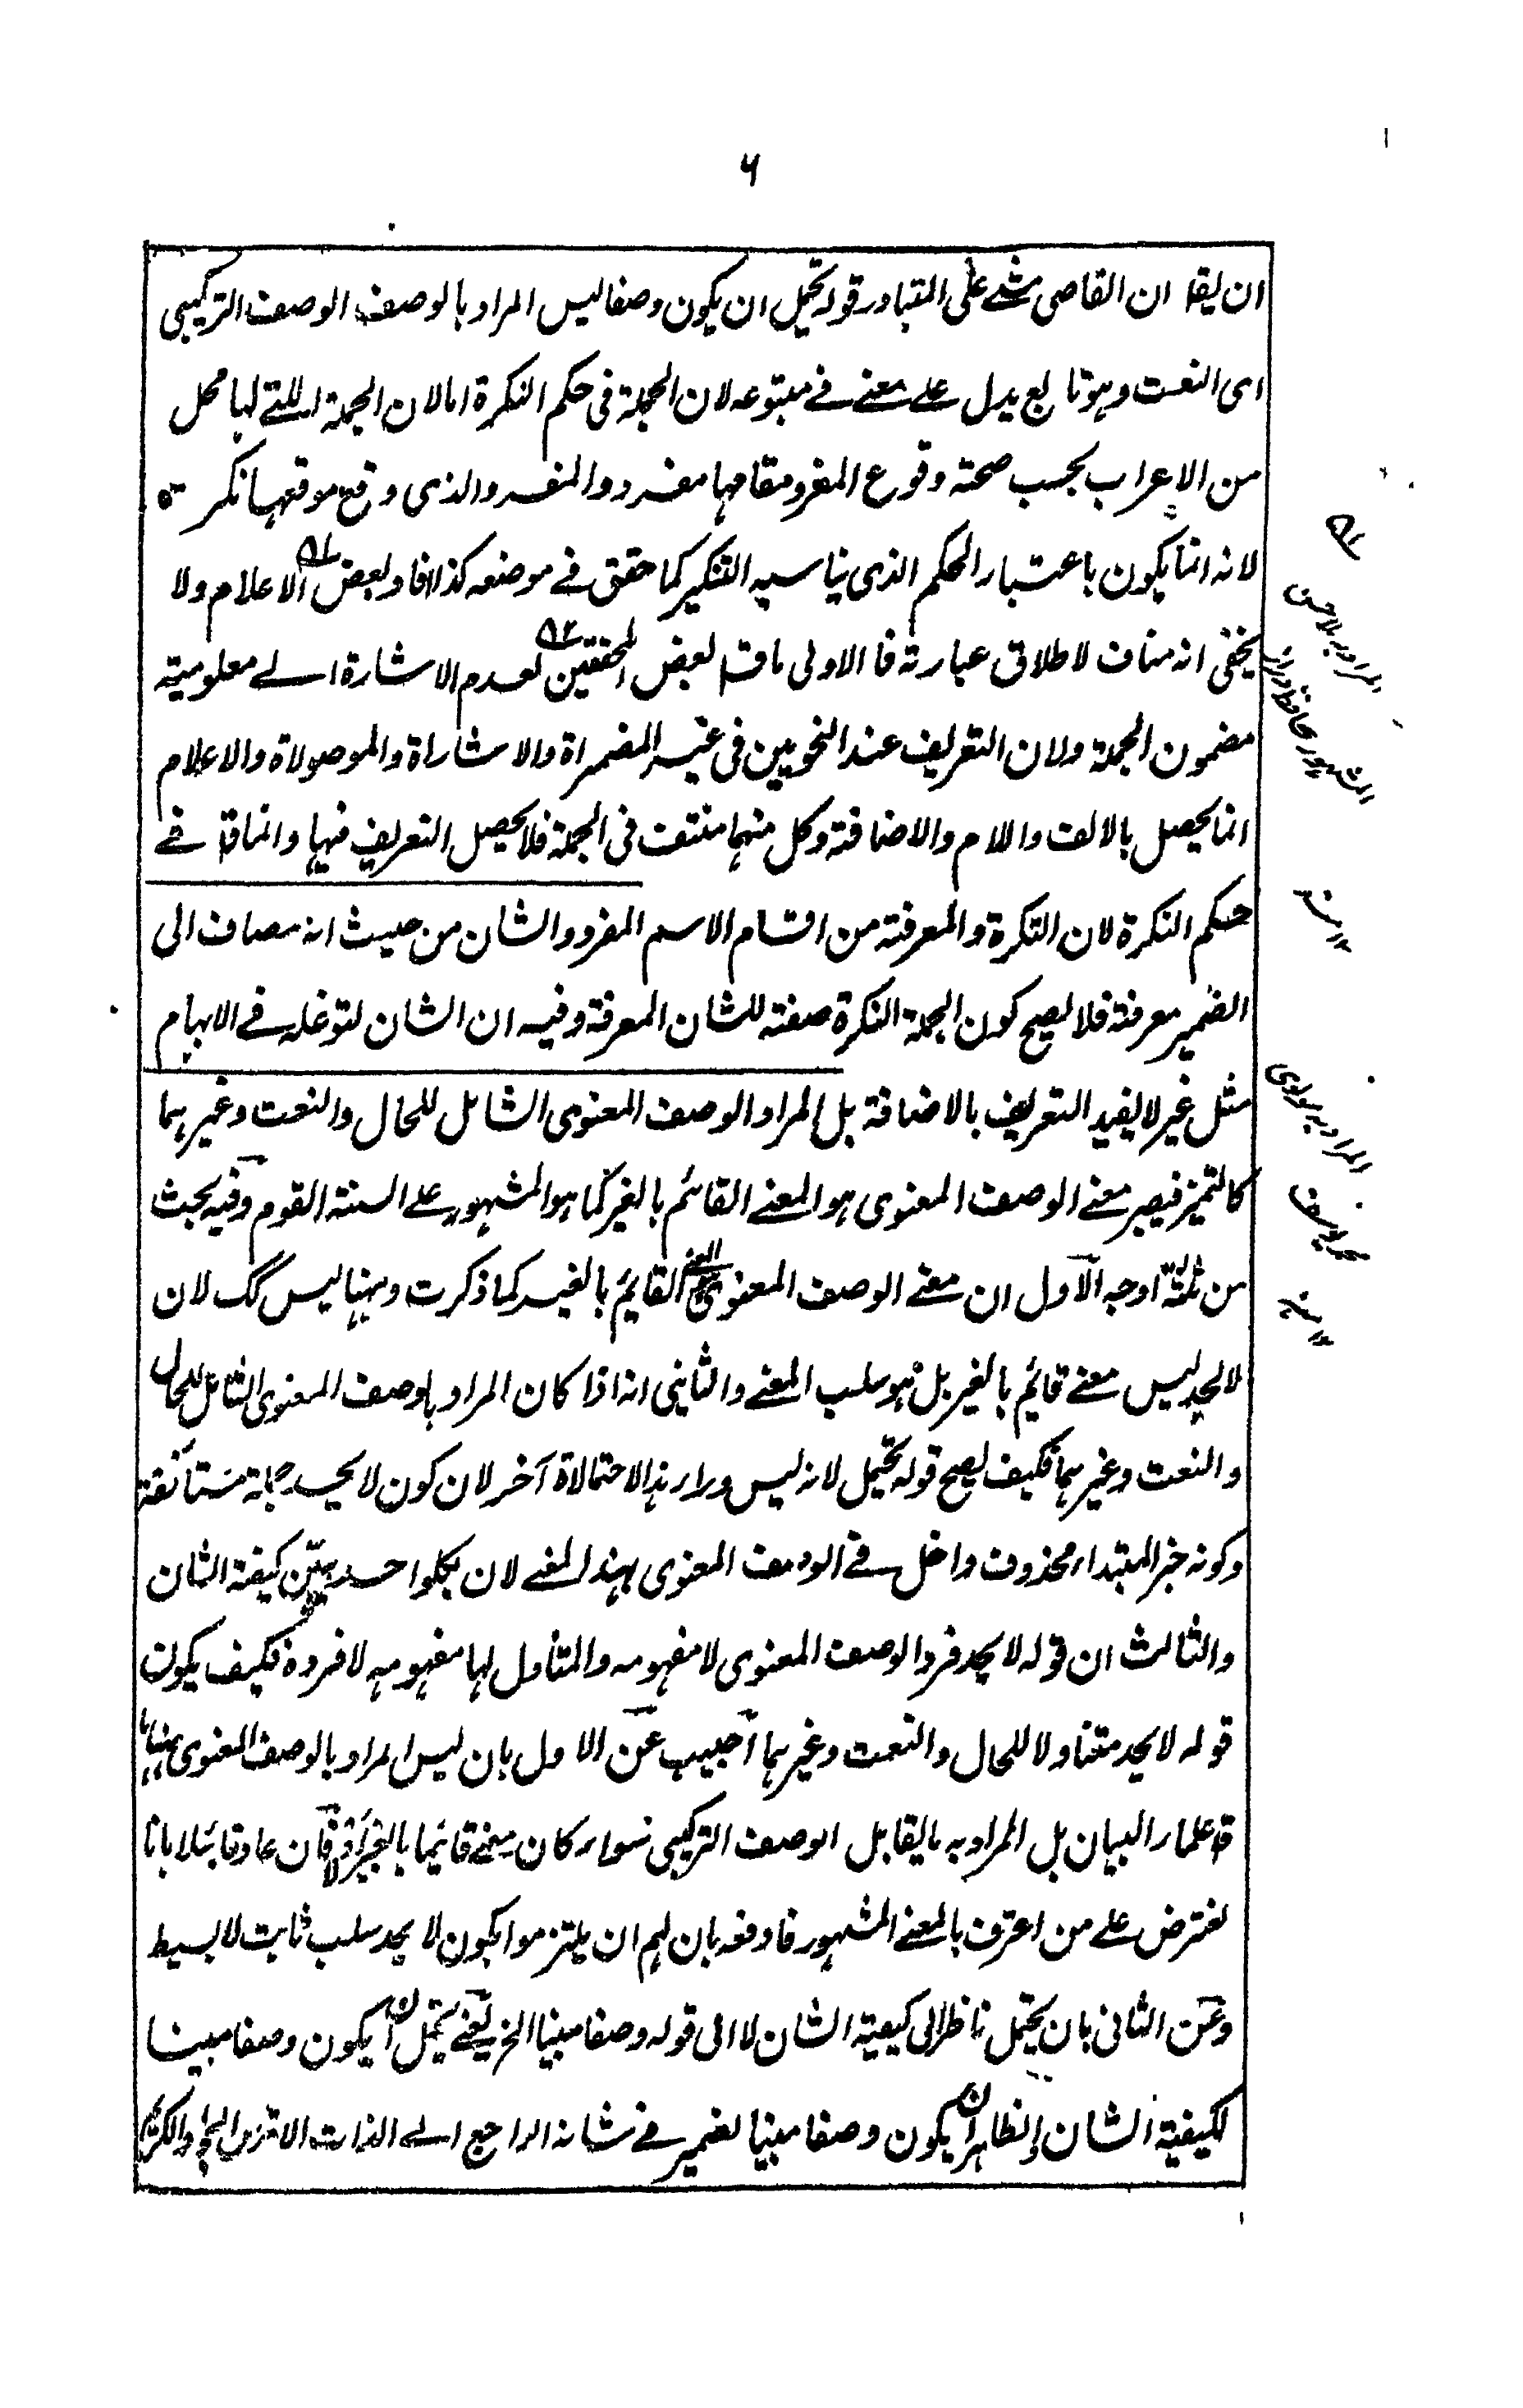 ٦
ان يقا ان القاصى مشے على المتبادر قوله تحمل ان يكون وصفا ليس المراد بالوصف الوصف التركيبى
اى النعت وهو تابع يدل علے معنے فے متبوعه لان الجملة فى حكم النكرة اما لان الجملة اللتے لها محل
من الاعراب بحسب صحة وقوع المفرد مقامها مفرد والمفرد الذى وقع موقعها نكرة
لانه انما يكون باعتبار الحكم الذى يناسبه التنكير كما حقق فے موضعه كذا افاد بعض الاعلام ولا
يخفى انه مناف لاطلاق عبارته فالاولى ما قا بعض المحققين لعدم الاشارة الے معلومية
مضمون الجملة ولان التعريف عند النحويين فى غير المضمراة والاشاراة والموصولاة والاعلام
انما يحصل بالالف واللام والاضافة وكل منهما منتف فى الجملة فلا يحصل التعريف فيها وانما قا فے
حكم النكرة لان النكرة والمعرفة من اقسام الاسم المفرد والشان من حيث انه مضاف الى
الضمير معرفة فلا يصح كون الجملة النكرة صفة للشان المعرفة وفيه ان الشان لتوغله فے الابهام
مثل غير لا يفيد التعريف بالاضافة بل المراد الوصف المعنوى الشامل للحال والنعت وغيرهما
كالتميز فيصير معنے الوصف المعنوى هو المعنے القائم بالغير كما هو المشهور علے السنة القوم وفيه بحث
من ثلثة اوجه الاول ان معنے الوصف المعنوى المعنے القايم بالغير كما ذكرت وههنا ليس كك لان
لا يحد ليس معنے قائم بالغير بل هو سلب المعنے والثانى انه اذا كان المراد بالوصف المعنوى الشامل للحال
والنعت وغيرهما فكيف يصح قوله تحتمل لانه ليس وراء هذا الاحتمالاة آخر لان كون لا يحد جملة مستأنفة
وكونه خبر المبتداء محذوف داخل فے الوصف المعنوى بهذا المعنے لان بكلوا حد يبين كيفية الشان
والثالث ان قوله لا يحد فرد الوصف المعنوى لا مفهومه والمتناول لها مفهومه لا فرده فكيف يكون
قوله لا يحد متناولا للحال والنعت وغيرهما اجيب عن الاول بان ليس المراد بالوصف المعنوى ههنا ما
قا علماء البيان بل المراد به ما يقابل الوصف التركيبى سواء كان معنے قائما بالغير او لا فان عاد قائلا بانا
نعترض علے من اعترف بالمعنے المشهور فادفعه بان لهم ان يلتزموا بكون لا يحد سلب ثابت لا بسيط
وعن الثانى بان يحتمل ناظر الى كيفية الشان لا الى قوله وصفا مبينا الخ يعنے يحتمل ان يكون وصفا مبينا
لكيفية الشان والظاهر ان يكون وصفا مبينا لضمير فے شانه الراجع الے الذات الاقدس الجواد الكريم
المراد به ملا حسن
المشهور حافظ دراز
١٢ منه
المراد به مولوى
محمد يوسف
١٢ منه